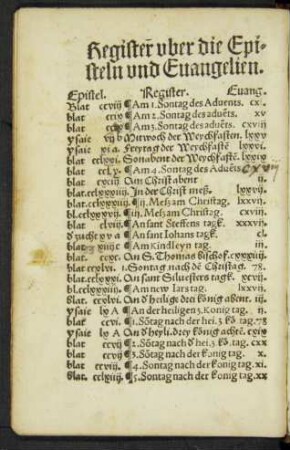 Register vber die Epi-
steln vnd Euangelien.
Epistel. Register. Euang.
Blat ccviij ¶ Am 1. Sontag des Aduents. cxi.
blat ccix ¶ Am 2. Sontag des aduēts. xv
blat ¶ Am 3. Sontag des aduēts. cxviij
ysaie vij b Mitwoch der Weychfasten. lxxv
ysaie xi a. Freytag der Weychfastē lxvi.
blat Sonabent der Weychfastē. lxxix
blat ¶ Am 4. Sontag des Aduēts
blat An Christ abent ij.
blat. In der Christ meß. lxxvij.
bl. ¶ ij. Messz am Christag. lxxvij.
bl. ¶ iij. Messz am Christag. cxvij.
blat clviij. An sant Steffens tag.
a An sant Johans tag. cl.
blat ¶ Am Kindleyn tag. iij.
blat ccxc. An S. Thomas Bischof. cxxxiiij.
blat ccxlvi. 1. Sontag nach dē Christag. 78.
blat. An sant Siluesters tag. xcvij.
bl. ¶ Am new Jars tag. lxxvij.
blat. ccxlvi. An d' heilige drey König abent. iij.
ysaie lx A An der heiligen 3. König tag. ij
blat ccvi. ¶ 1. Sōtag nach der hei. 3 kō. tag. 78
ysaie lx A An d' heyli. drey König achte. cxix
blat ccvij ¶ 2. Sōtag nach d' hei. 3 kō. tag. cxx
blat ccvij ¶ 3. Sōtag nach der König tag. x.
blat. ccviij. ¶ 4. Sontag nach der König tag. xi.
blat. ¶ 5. Sontag nach der König tag. xx